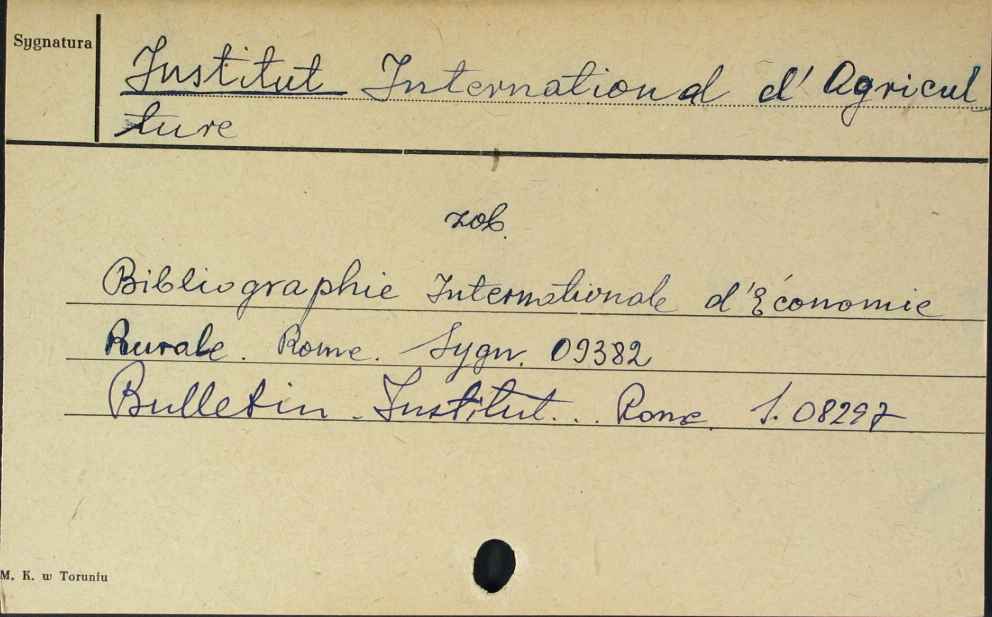 Sygnatura
Institut International d'Agricul
ture
zob.
Bibliographie Internationale d'Économie
Rurale. Rome. Sygn. 09382
Bulletin. Institut... Rome. S. 08297
M. K. w Toruniu